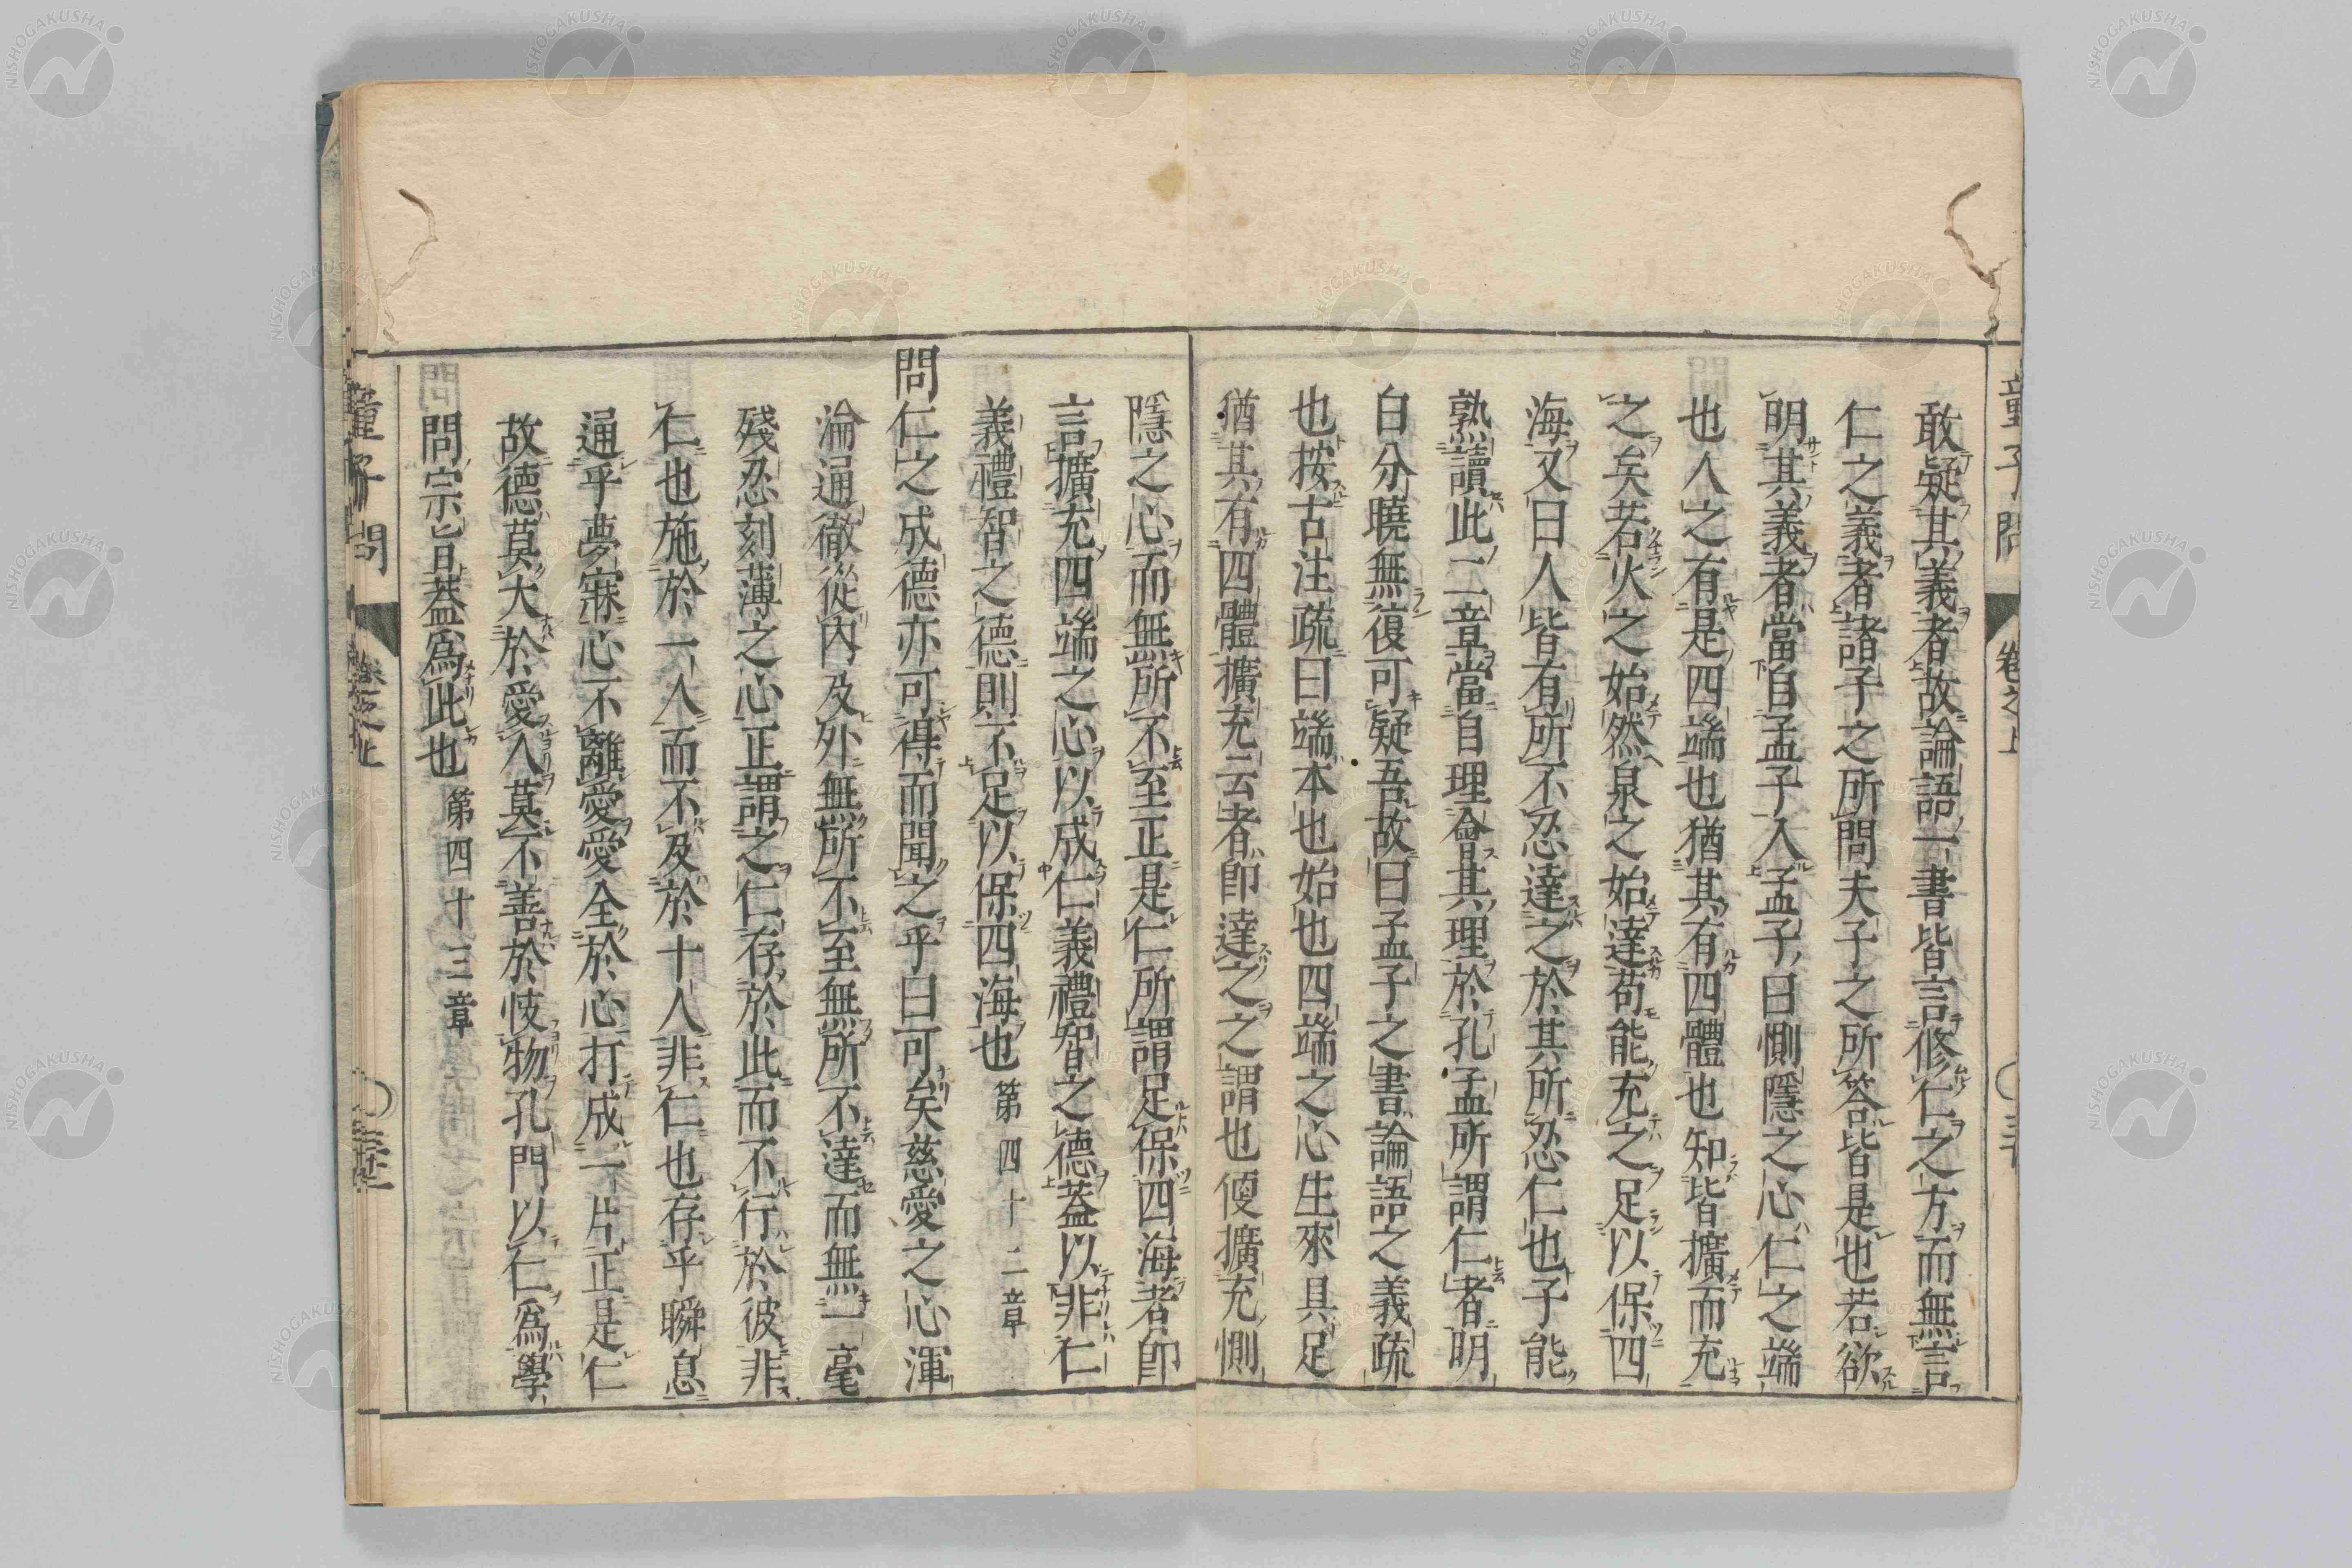 敢疑其義者故論語一書皆言修仁之方而無言
仁之義者諸子之所問夫子之所答皆是也若欲
明其義者當自孟子入孟子曰惻隱之心仁之端
也人之有是四端也猶其有四體也知皆擴而充
之矣若火之始然泉之始達苟能充之足以保四
海又曰人皆有所不忍達之於其所忍仁也子能
熟讀此二章當自理會其理於孔孟所謂仁者明
白分曉無復可疑吾故曰孟子之書論語之義疏
也按古注疏曰端本也始也四端之心生來具足
猶其有四體擴充云者卽達之之謂也便擴充惻
隱之心而無所不至正是仁所謂足保四海者卽
言擴充四端之心以成仁義禮智之德蓋以非仁
義禮智之德則不足以保四海也 第四十二章
問仁之成德亦可得而聞之乎曰可矣慈愛之心渾
淪通徹從內及外無所不至無所不達而無一毫
殘忍刻薄之心正謂之仁存於此而不行於彼非
仁也施於一人而不及於十人非仁也存乎瞬息
通乎夢寐心不離愛愛全於心打成一片正是仁
故德莫大於愛人莫不善於忮物孔門以仁爲學
問宗旨蓋爲此也 第四十三章
童子問 卷之上
NISHOGAKUSHA